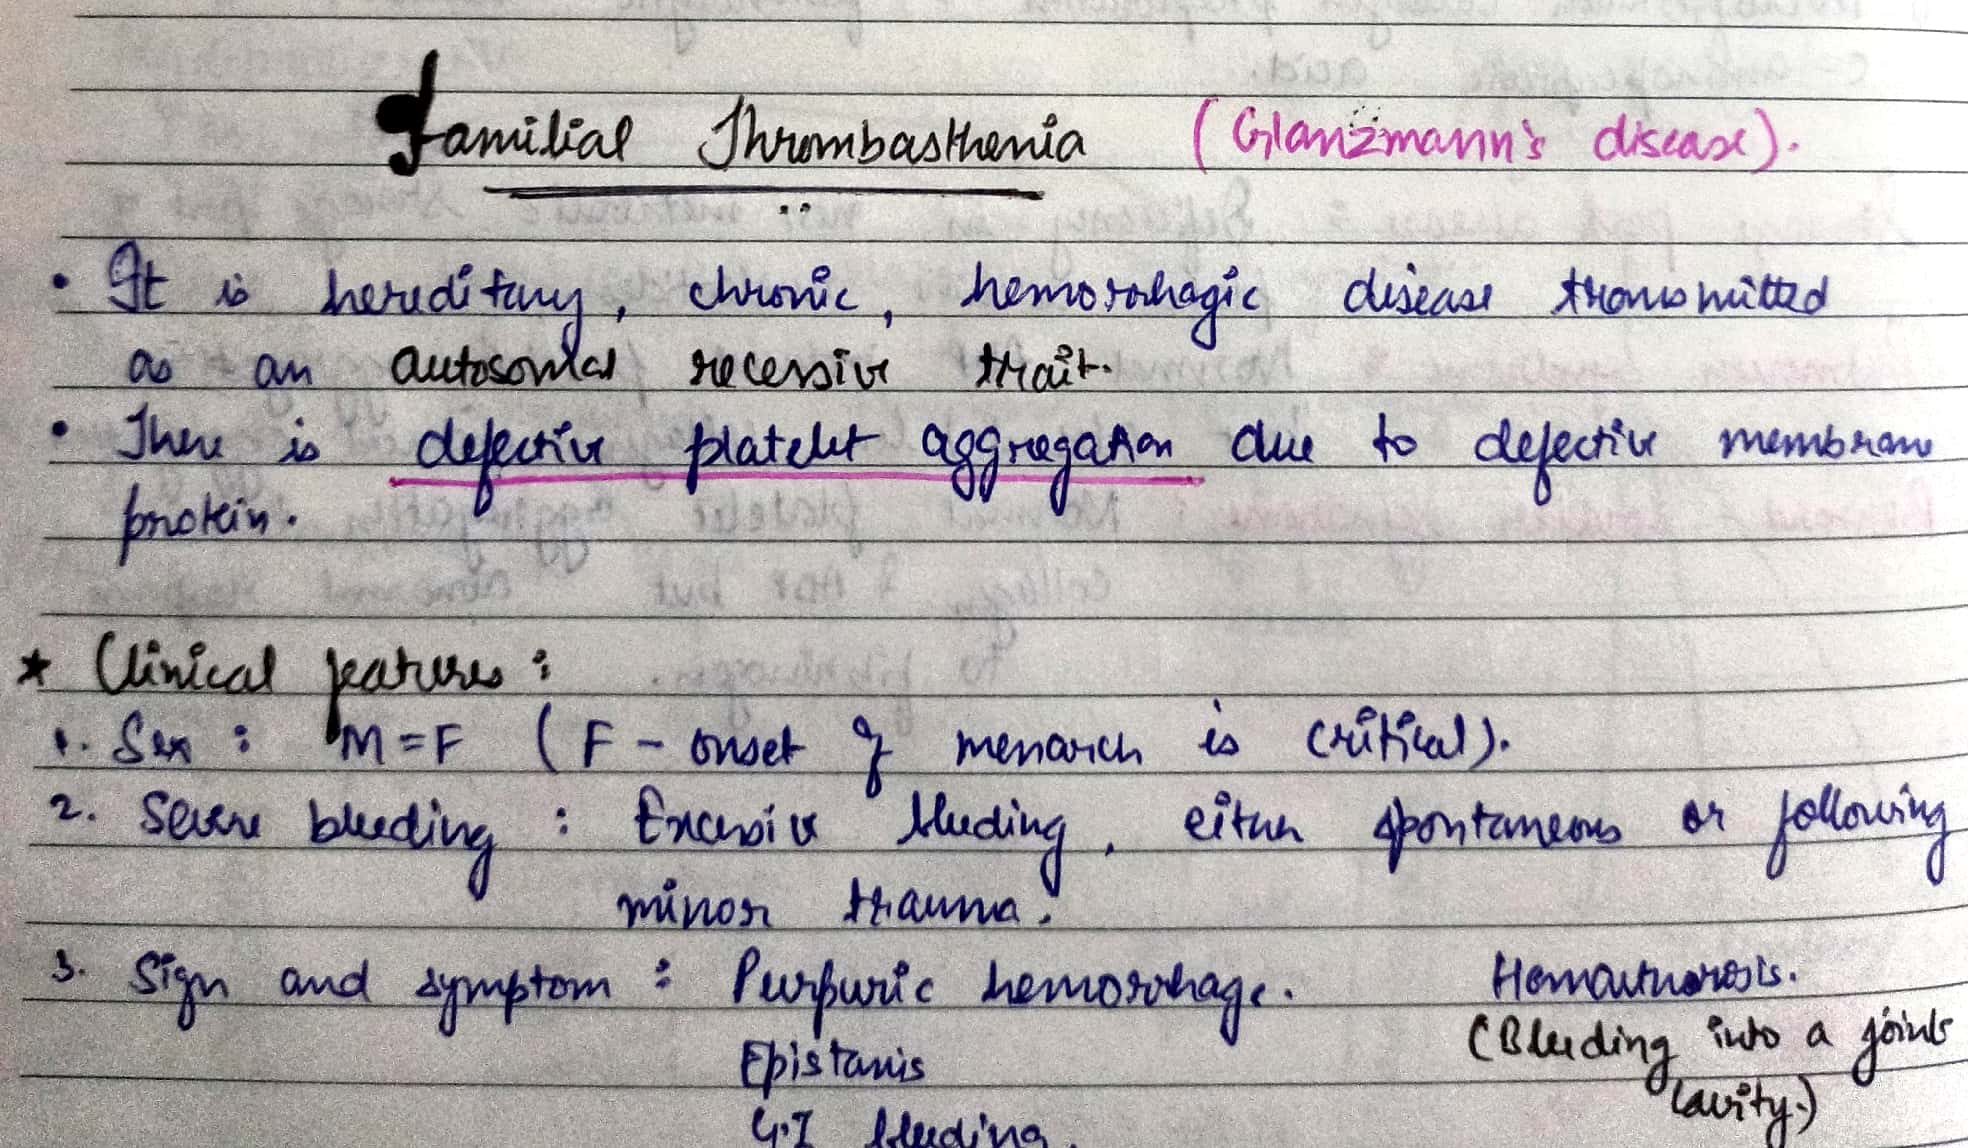 Familial Thrombasthenia (Glanzmann's disease).
• It is hereditary, chronic, hemorrhagic disease transmitted
as an autosomal recessive trait.
• There is defective platelet aggregation due to defective membrane
protein.
* Clinical features :
1. Sex : M = F (F - onset of menarch is critical).
2. Severe bleeding : Excessive bleeding, either spontaneous or following
minor trauma.
3. Sign and symptom : Purpuric hemorrhage. Hemarthrosis.
(Bleeding into a joints
cavity.)
Epistaxis
G.I bleeding.